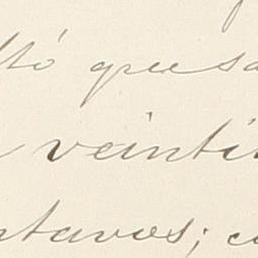 ltó que sa
veinti
ntavos; c